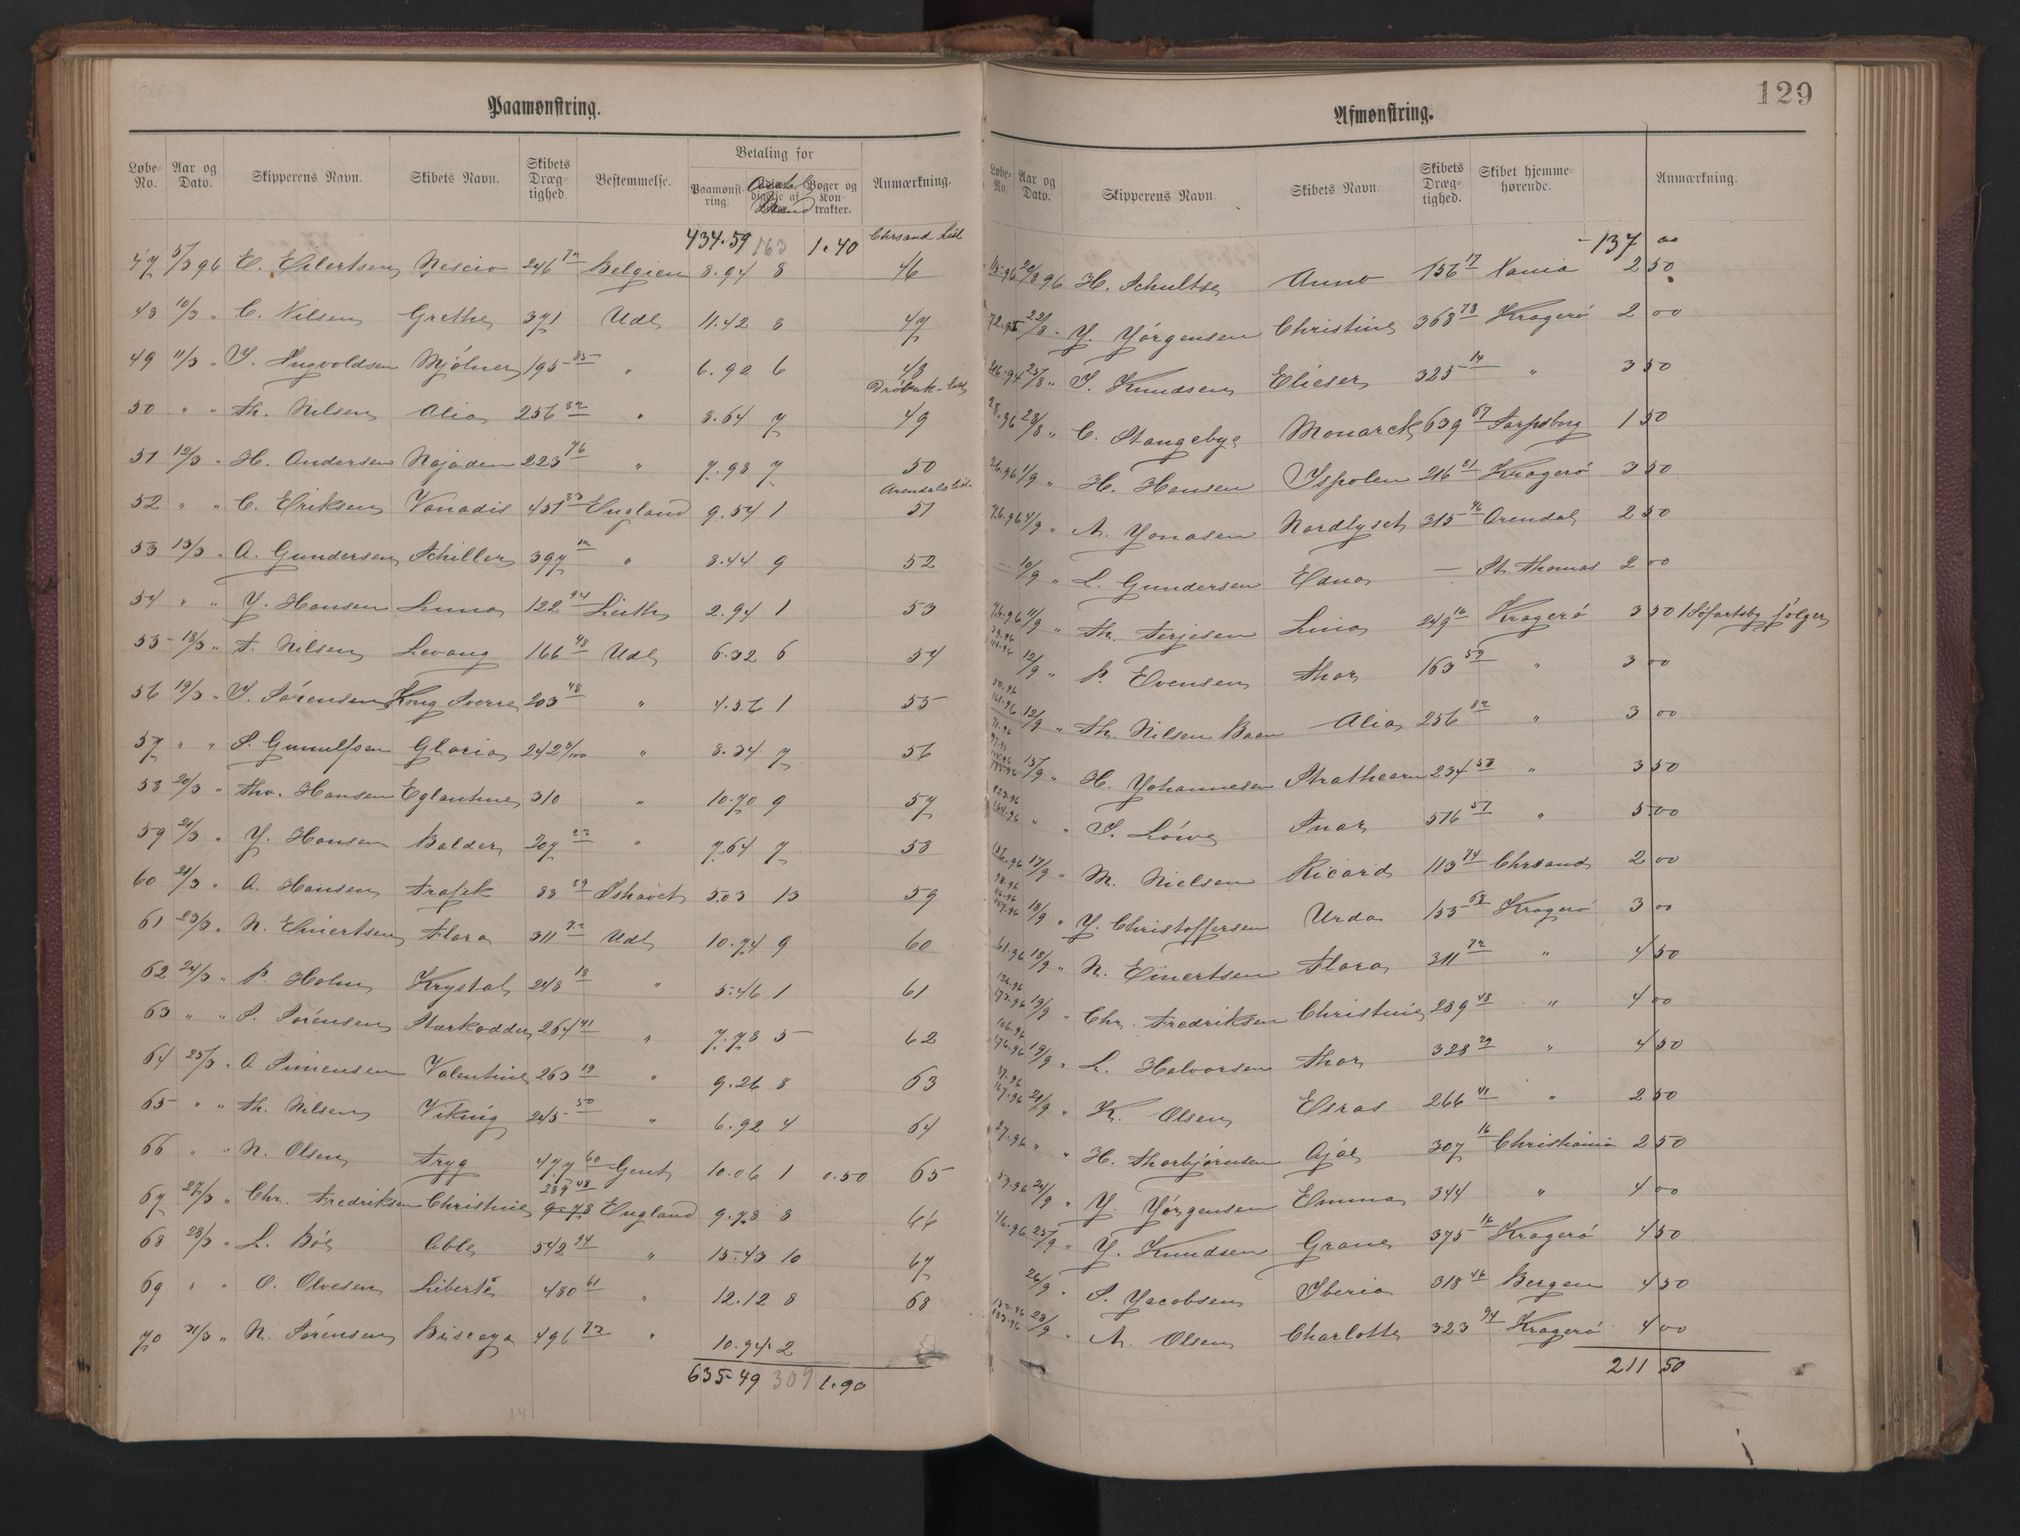 129
Paamønstring.
Løbe-No. Aar og Dato. Skipperens Navn. Skibets Navn. Skibets Dræg-tighed. Bestemmelse. Betaling for Paamønst-ring. Bøger og Kon-trakter. Anmærkning.
434.59 163 1.40 Chrsand List
47 5/3 96 E. Eilertsen Nescio 246 72 Belgien 8.94 8 46
48 10/3 " C. Nilsen Grethe 371 Udl 11.42 8 47
49 11/3 " T. Ingvoldsen Mjölner 195 85 " 6.92 6 48
Dröbak-List
50 " " Th. Nilsen Alia 256 82 " 8.64 7 49
51 12/3 " H. Andersen Najaden 223 76 " 7.98 7 50
Arendals List
52 " " C. Eriksen Vanadis 451 83 England 9.54 1 51
53 13/3 " A. Gundersen Schiller 397 12 " 8.44 9 52
54 " " J. Hansen Luna 122 94 Leith 2.94 1 53
55 18/3 " F. Nilsen Levang 166 48 Udl 6.32 6 54
56 19/3 " T. Sörensen Kong Sverre 203 48 " 4.56 1 55
57 " " S. Gunulfsen Gloria 242 8/100 " 8.34 7 56
58 20/3 " Tho. Hansen Eglantine 310 " 10.70 9 57
59 21/3 " J. Hansen Balder 207 22 " 7.64 7 58
60 21/3 " A. Hansen Trafik 88 89 Ishavet 5.03 13 59
61 23/3 " N. Einertsen Flora 311 72 Udl 10.74 9 60
62 24/3 " P. Holm Krystal 248 18 " 5.46 1 61
63 " " S. Sörensen Stærkodder 264 41 " 7.78 5 62
64 25/3 " A Simensen Valentine 263 19 " 9.26 8 63
65 " " Th. Nilsen Viking 245 50 " 6.92 4 64
66 " " N. Olsen Tryg 477 60 Gent 10.06 1 0.50 65
67 27/3 " Chr. Fredriksen Christine 289 48 9.78 England 9.78 8 66
68 28/3 " L. Böe Able 542 94 " 15.43 10 67
69 " " O. Olvesen Liberté 480 61 " 12.12 8 68
70 31/3 " N. Sörensen Biscaya 496 73 " 10.94 2
635.49 309 1.90
Afmønstring.
Løbe-No. Aar og Dato. Skipperens Navn. Skibets Navn. Skibets Dræg-tighed. Skibet hjemme-hørende. Anmærkning.
137 00
15.96 20/8 96 H. Schultse Anna 156 17 Xania 2 50
72.95 22/8 " J. Jörgensen Christine 368 78 Kragerö 2 00
26.94 25/8 " T. Knudsen Elieser 325 14 " 3 50
28.96 28/8 " C. Stangebye Monarck 639 67 Sarpsborg 1 50
26.96 1/9 " H. Hansen Ispolen 216 81 Kragerö 3 50
76.96 4/9 " A. Jonasen Nordlyset 315 46 Arendal 2 50
— 10/9 " L. Gundersen Edna — St. Thomas 2 00
76.96 11/9 " Th. Terjesen Lina 249 16 Kragerö 3 50 1 Söfartsbg fölger
12/9 " P. Evensen Thor 163 52 " 3 00
12/9 " Th. Nilsen Baen Alia 256 82 " 3 00
15/9 " H. Johannesen Strathearn 234 58 " 3 50
" " T. Löwe Snar 576 57 " 5 00
17/9 " M. Nielsen Ricard 113 74 Chrsand 2 00
18/9 " J. Christoffersen Urda 153 68 Kragerö 3 00
61.96 18/9 " N. Einertsen Flora 311 72 " 4 50
173.96 19/9 " Chr. Fredriksen Christine 289 48 " 4 00
106.96 176.96 19/9 " L. Halvorsen Thor 328 29 " 4 50
167.96 21/9 " K. Olsen Esras 266 41 " 2 50
27.96 " " H. Thorbjörnsen Ajax 307 16 Christiania 2 50
59.96 24/9 " J. Jörgensen Emma 344 " 4 00
46.96 25/9 " J. Knudsen Grane 375 16 Kragerö 4 50
26/9 " S. Jacobsen Iberia 318 46 Bergen 4 50
150.96 183.96 28/9 " A. Olsen Charlotte 323 94 Kragerö 4 00
211 50